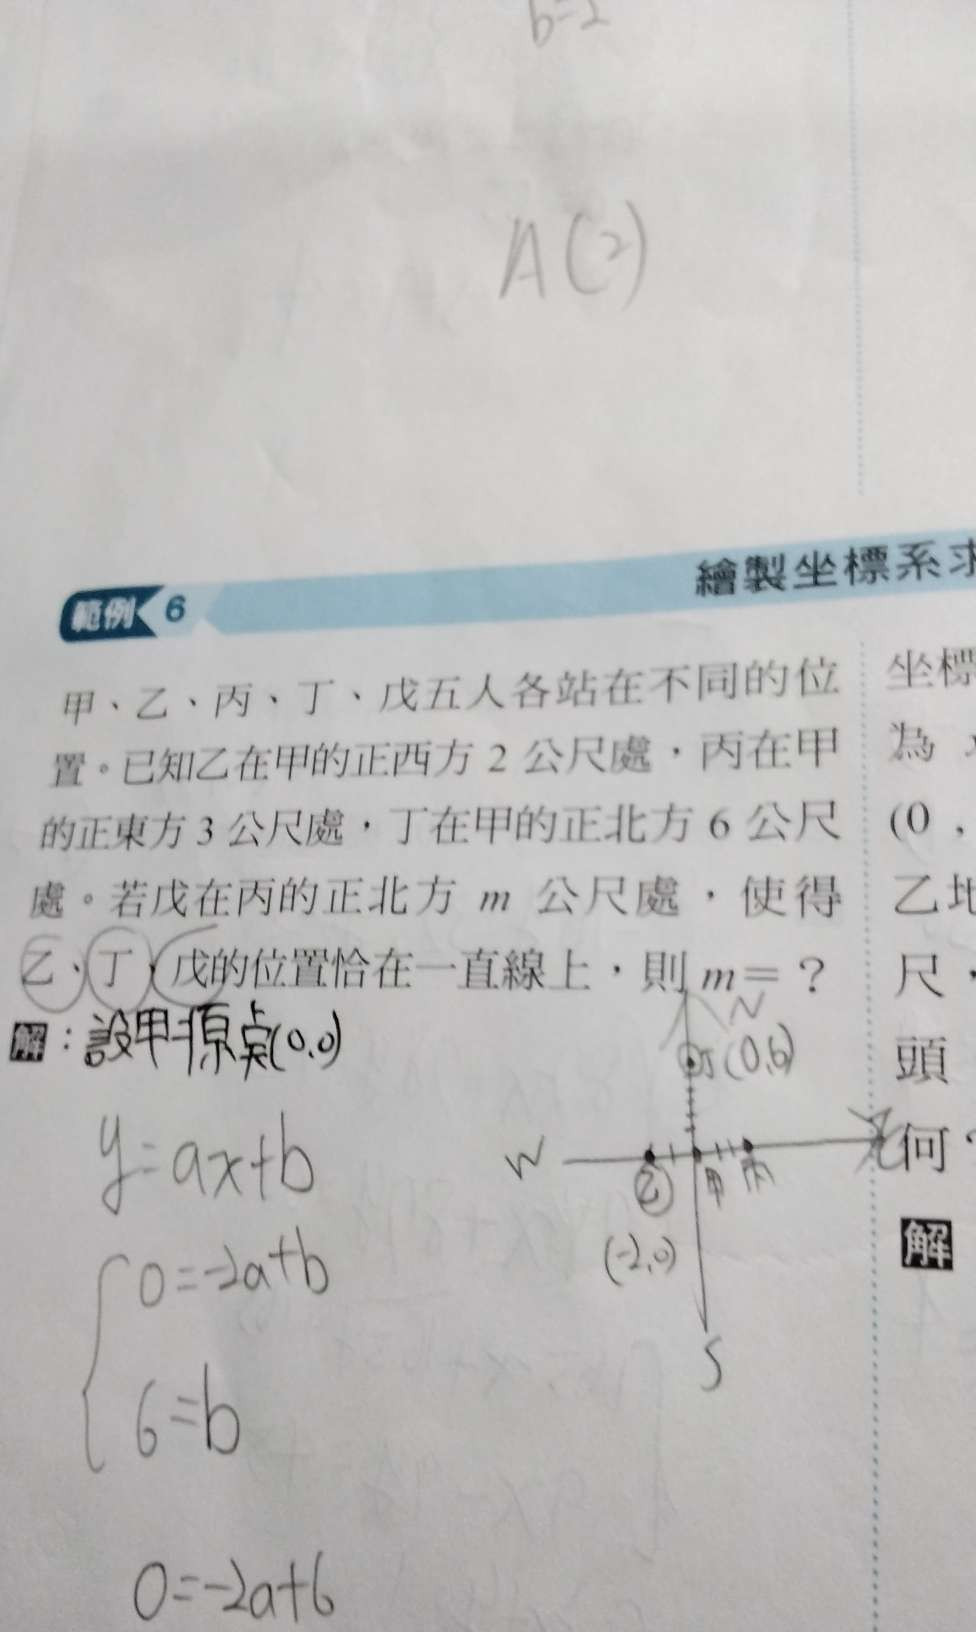 b=2
A(2)
範例 6
繪製坐標系求
甲、乙、丙、丁、戊五人各站在不同的位
置。已知乙在甲的正西方 2 公尺處,丙在甲
的正東方 3 公尺處,丁在甲的正北方 6 公尺
處。若戊在丙的正北方 m 公尺處,使得
乙、丁、戊的位置恰在一直線上,則 m=?
解:設甲原点(0,0)
y=ax+b
0=-2a+b
6=b
0=-2a+6
N
丁(0,6)
W
乙
甲
丙
(-2,0)
S
坐標
為
(0,
乙地
尺,
頭
何
解